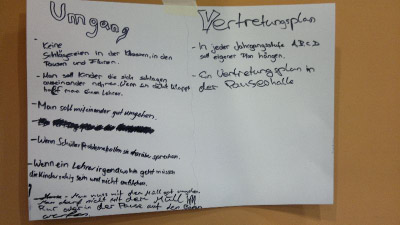 Umgang
- Keine
Schlägereien in der Klassen, in den
Pausen und Fluren.
- Man soll Kinder die sich schlagen
auseinander nehmen. Wenn es nicht klappt
holt man einen Lehrer.
- Man soll miteinander gut umgehen.
- Wenn Schüler Probleme haben sie darüber sprechen.
- Wenn ein Lehrer irgendwohin geht müssen
die Kinder ruhig sein und nicht
Man muss mit dem Müll gut umgehen
Man darf nicht mit dem Müll
Nur oder in der Pause auf den
werfen.
Vertretungsplan
- In jeder Jahrgangsstufe A,B,C,D
soll eigener Plan hängen.
- En Vertretungsplan in
der Pausenhalle